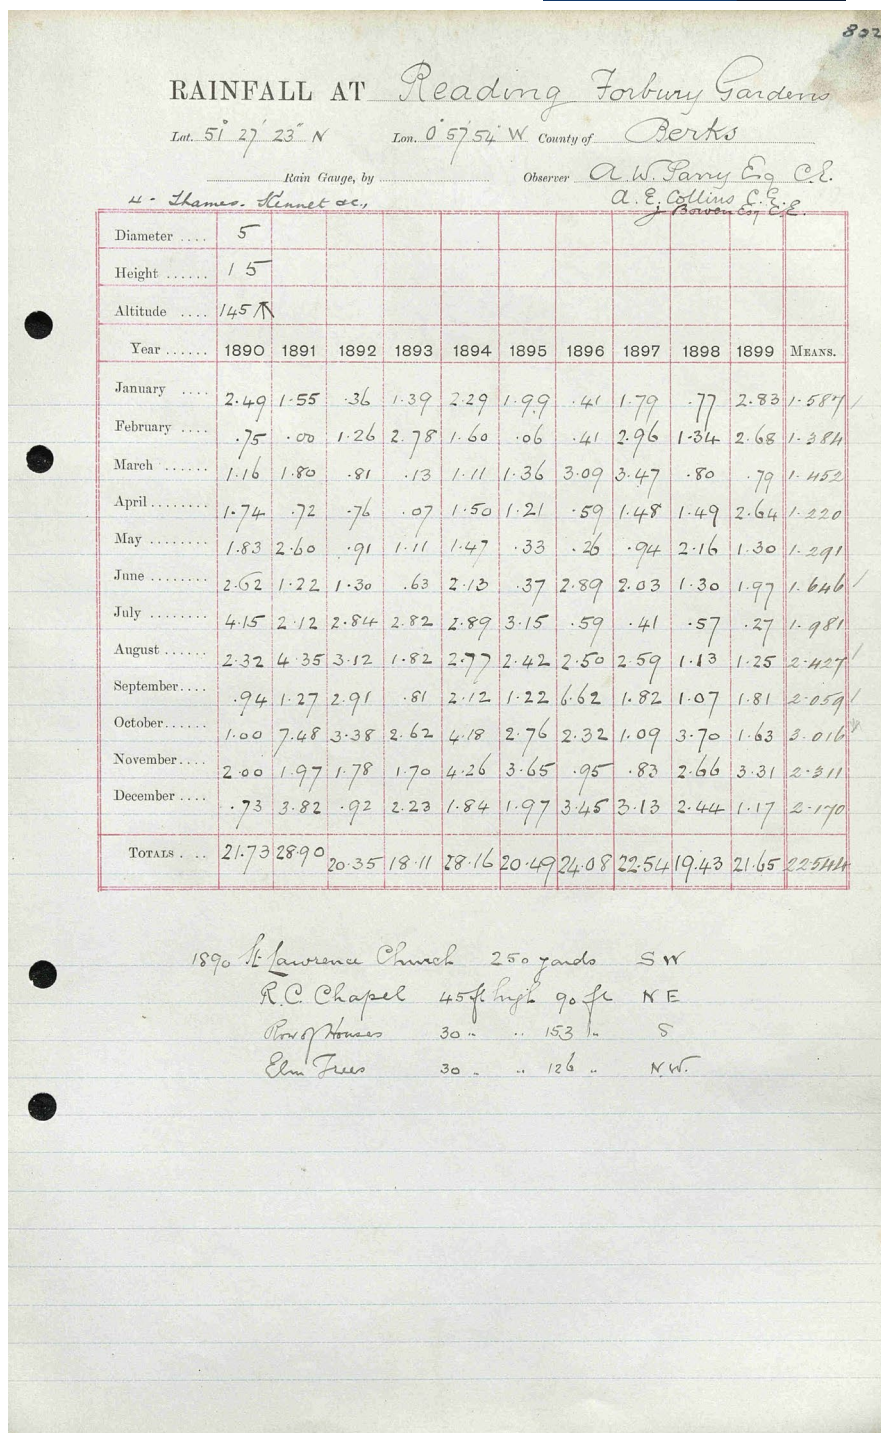 802
RAINFALL AT Reading Forbury Gardens
Lat. 51° 27' 23" N Lon. 0° 57' 54" W County of Berks
Rain Gauge, by Observer A. W. Parry Esq C.E.
4 - Thames. Kennet &c, A. E. Collins C.E.
J Bowen Esq C.E.
Diameter .... 5
Height ...... 1 5
Altitude .... 145
Year ...... 1890 1891 1892 1893 1894 1895 1896 1897 1898 1899 MEANS.
January .... 2.49 1.55 .36 1.39 2.29 1.99 .41 1.79 .77 2.83 1.587
February .... .75 .00 1.26 2.78 1.60 .06 .41 2.96 1.34 2.68 1.384
March ...... 1.16 1.80 .81 .13 1.11 1.36 3.09 3.47 .80 .79 1.452
April ........ 1.74 .72 .76 .07 1.50 1.21 .59 1.48 1.49 2.64 1.220
May ........ 1.83 2.60 .91 1.11 1.47 .33 .26 .94 2.16 1.30 1.291
June ........ 2.62 1.22 1.30 .63 2.13 .37 2.89 2.03 1.30 1.97 1.646
July ........ 4.15 2.12 2.84 2.82 2.89 3.15 .59 .41 .57 .27 1.981
August ...... 2.32 4.35 3.12 1.82 2.77 2.42 2.50 2.59 1.13 1.25 2.427
September.... .94 1.27 2.91 .81 2.12 1.22 6.62 1.82 1.07 1.81 2.059
October...... 1.00 7.48 3.38 2.62 4.18 2.76 2.32 1.09 3.70 1.63 3.016
November.... 2.00 1.97 1.78 1.70 4.26 3.65 .95 .83 2.66 3.31 2.311
December.... .73 3.82 .92 2.23 1.84 1.97 3.45 3.13 2.44 1.17 2.170
TOTALS .... 21.73 28.90 20.35 18.11 28.16 20.49 24.08 22.54 19.43 21.65 22.544
1890 St Lawrence Church 250 yards SW
R.C. Chapel 45 ft high 90 ft NE
Row of Houses 30 " " 153 " S
Elm Trees 30 " " 126 " N.W.